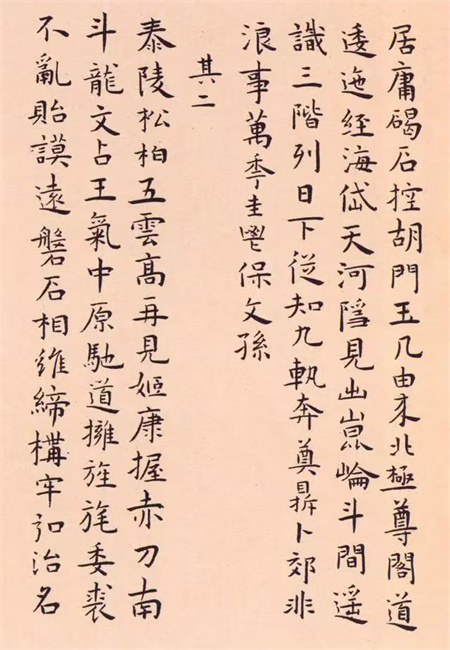 居庸碣石控胡門玉几由来北極尊閣道
逶迤経海岱天河隱見出崑崙斗間遥
識三階列日下從知九軌奔奠鼎卜郊非
浪事萬秊圭鬯保文孫
其二
泰陵松柏五雲高再見姬康握赤刀南
斗龍文占王氣中原馳道擁旌旄委裘
不亂貽謨遠磐石相維締構牢弘治名